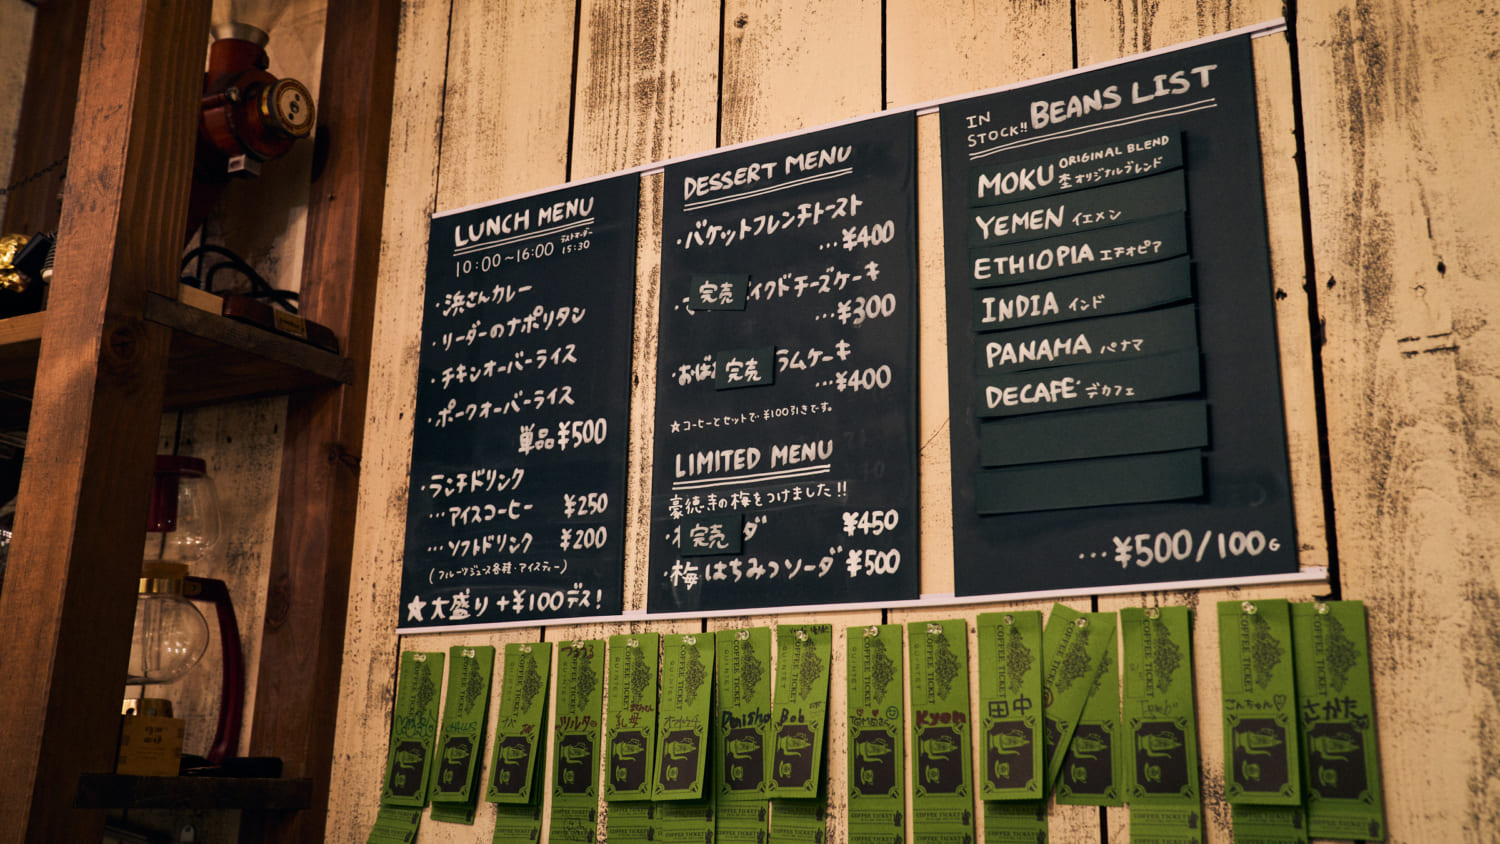 LUNCH MENU
10:00~16:00 ラストオーダー 15:30
・浜さんカレー
・リーダーのナポリタン
・チキンオーバーライス
・ポークオーバーライス
単品¥500
・ランチドリンク
…アイスコーヒー ¥250
…ソフトドリンク ¥200
(フルーツジュース各種・アイスティー)
★大盛り+¥100デス!
DESSERT MENU
・バケットフレンチトースト
…¥400
完売 イクドチーズケーキ
…¥300
・おば 完売 ラムケーキ
…¥400
★コーヒーとセットで¥100引きです。
LIMITED MENU
豪徳寺の梅をつけました!!
完売 ダ ¥450
・梅はちみつソーダ ¥500
IN STOCK!! BEANS LIST
MOKU ORIGINAL BLEND
杢オリジナルブレンド
YEMEN イエメン
ETHIOPIA エチオピア
INDIA インド
PANAMA パナマ
DECAFE デカフェ
…¥500/100G
COFFEE TICKET
QUINTET
ツルタ
Bob
Kyon
田中
こんちゃん♡
さかた
COFFEE TICKET